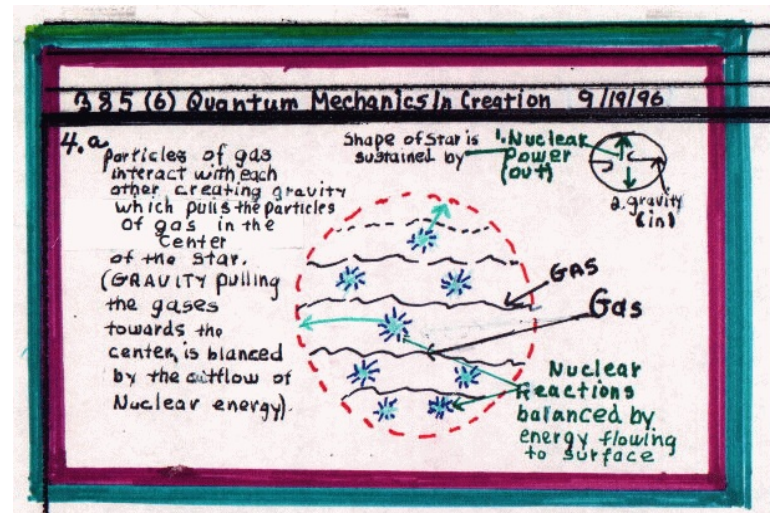 385 (6) Quantum Mechanics In Creation 9/19/96
4.a
particles of gas
interact with each
other creating gravity
which pulls the particles
of gas in the
center
of the star.
(GRAVITY pulling
the gases
towards the
center, is blanced
by the outflow of
Nuclear energy).
Shape of Star is
sustained by
1. Nuclear
Power
(out)
2. gravity
(in)
GAS
Gas
Nuclear
Reactions
balanced by
energy flowing
to surface